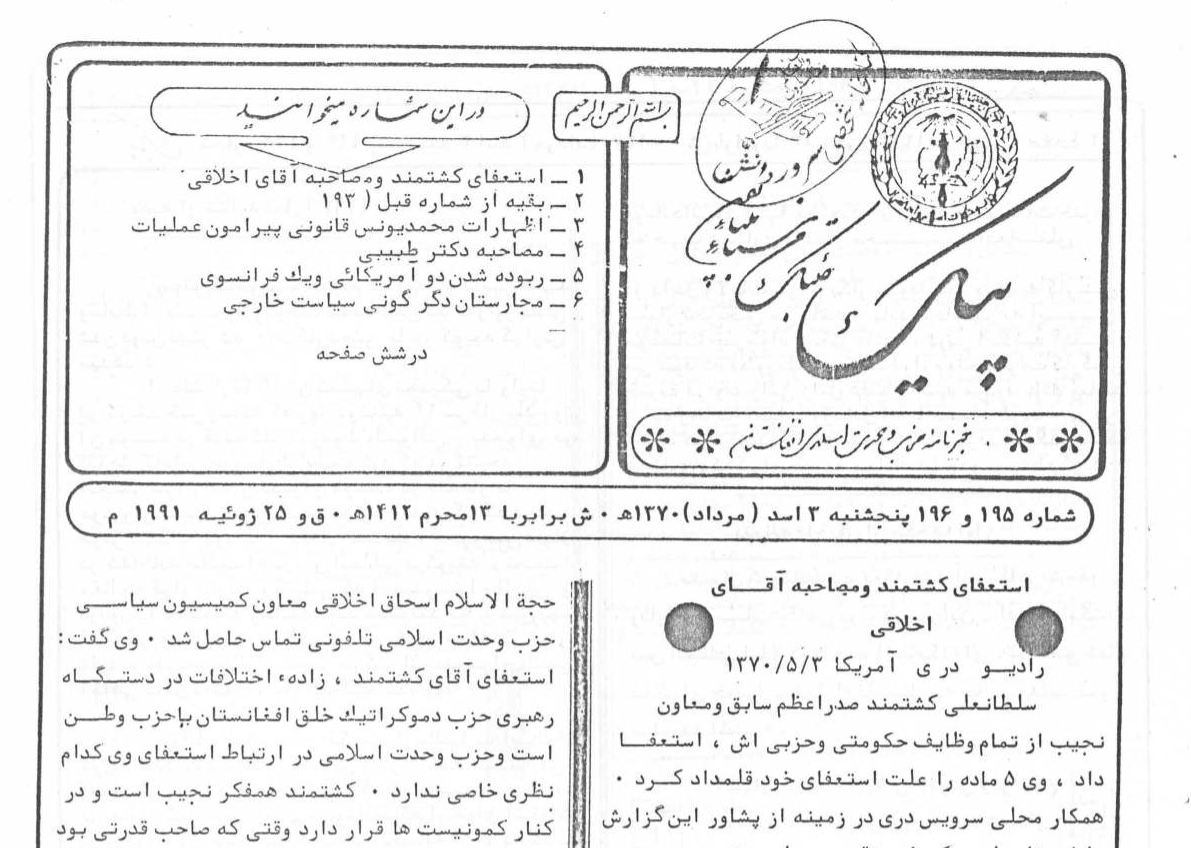 بسم الله الرحمن الرحیم
در این شماره میخوانید
۱ ــ استعفای کشتمند ومصاحبه آقای اخلاقی
۲ ــ بقیه از شماره قبل ( ۱۹۳
۳ ــ اظهارات محمدیونس قانونی پیرامون عملیات
۴ ــ مصاحبه دکتر طبیبی
۵ ــ ربوده شدن دو آمریکائی ویك فرانسوی
۶ ــ مجارستان دگر گونی سیاست خارجی
درشش صفحه
خبرنامه حزبی و خبری اسلامی افغانستان
شماره ۱۹۵ و ۱۹۶ پنجشنبه ۳ اسد ( مرداد)۱۳۷۰هـ ۰ ش برابربا ۱۳محرم ۱۴۱۲هـ ۰ ق و ۲۵ ژوئیه ۱۹۹۱ م
استعفای کشتمند ومصاحبه آقــای
اخلاقی
رادیـو دری آمریکا ۱۳۷۰/۵/۳
سلطانعلی کشتمند صدراعظم سابق ومعاون
نجیب از تمام وظایف حکومتی وحزبی اش ، استعفـا
داد ، وی ۵ ماده را علت استعفای خود قلمداد کـرد ۰
همکار محلی سرویس دری در زمینه از پشاور این گزارش
حجة الاسلام اسحاق اخلاقی معاون کمیسیون سیاسـی
حزب وحدت اسلامی تلفونی تماس حاصل شد ۰ وی گفت:
استعفای آقای کشتمند ، زادهء اختلافات در دستگـاه
رهبری حزب دموکراتیك خلق افغانستان یاحزب وطـن
است وحزب وحدت اسلامی در ارتباط استعفای وی کدام
نظری خاصی ندارد ۰ کشتمند همفکر نجیب است و در
کنار کمونیست ها قرار دارد وقتی که صاحب قدرتی بود